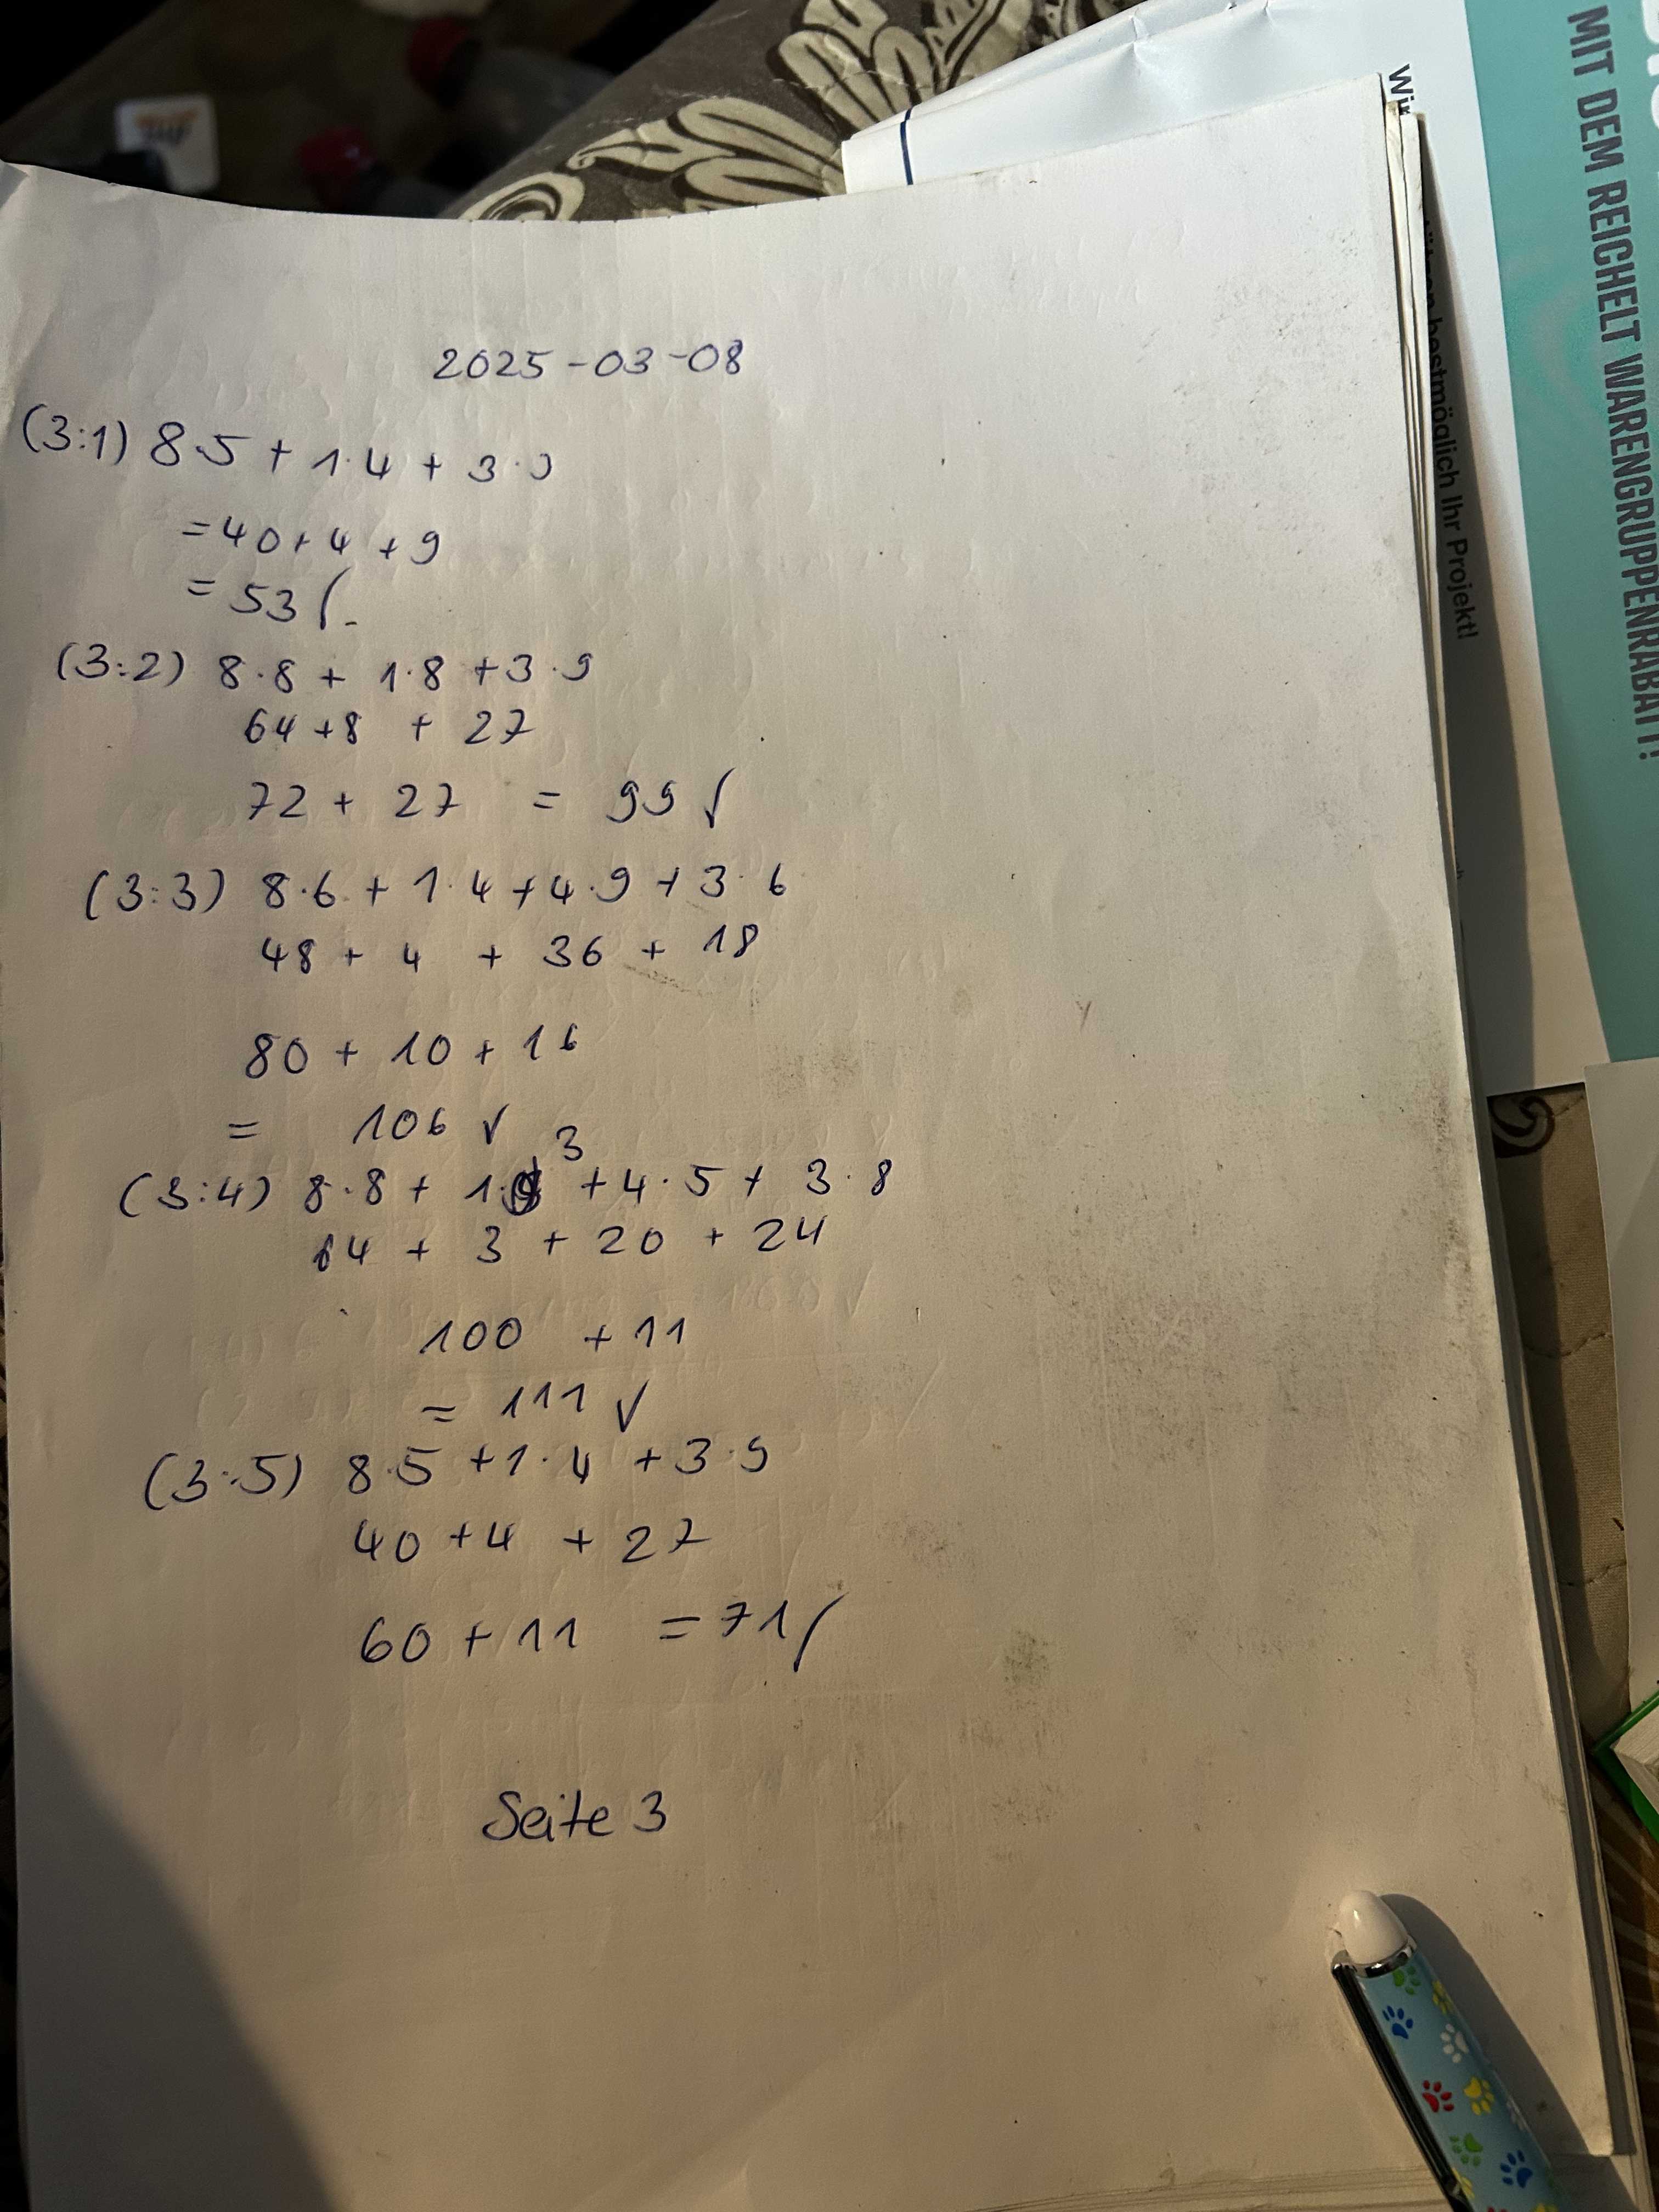 2025-03-08
(3:1) 8·5 + 1·4 + 3·3
= 40 + 4 + 9
= 53 √
(3:2) 8·8 + 1·8 + 3·9
64 + 8 + 27
72 + 27 = 99 √
(3:3) 8·6 + 1·4 + 4·9 + 3·6
48 + 4 + 36 + 18
80 + 10 + 16
= 106 √
(3:4) 8·8 + 1·3 + 4·5 + 3·8
64 + 3 + 20 + 24
100 + 11
= 111 √
(3:5) 8·5 + 1·4 + 3·9
40 + 4 + 27
60 + 11 = 71 √
Seite 3
MIT DEM REICHELT WARENGRUPPENRABATT!
bestmöglich Ihr Projekt!